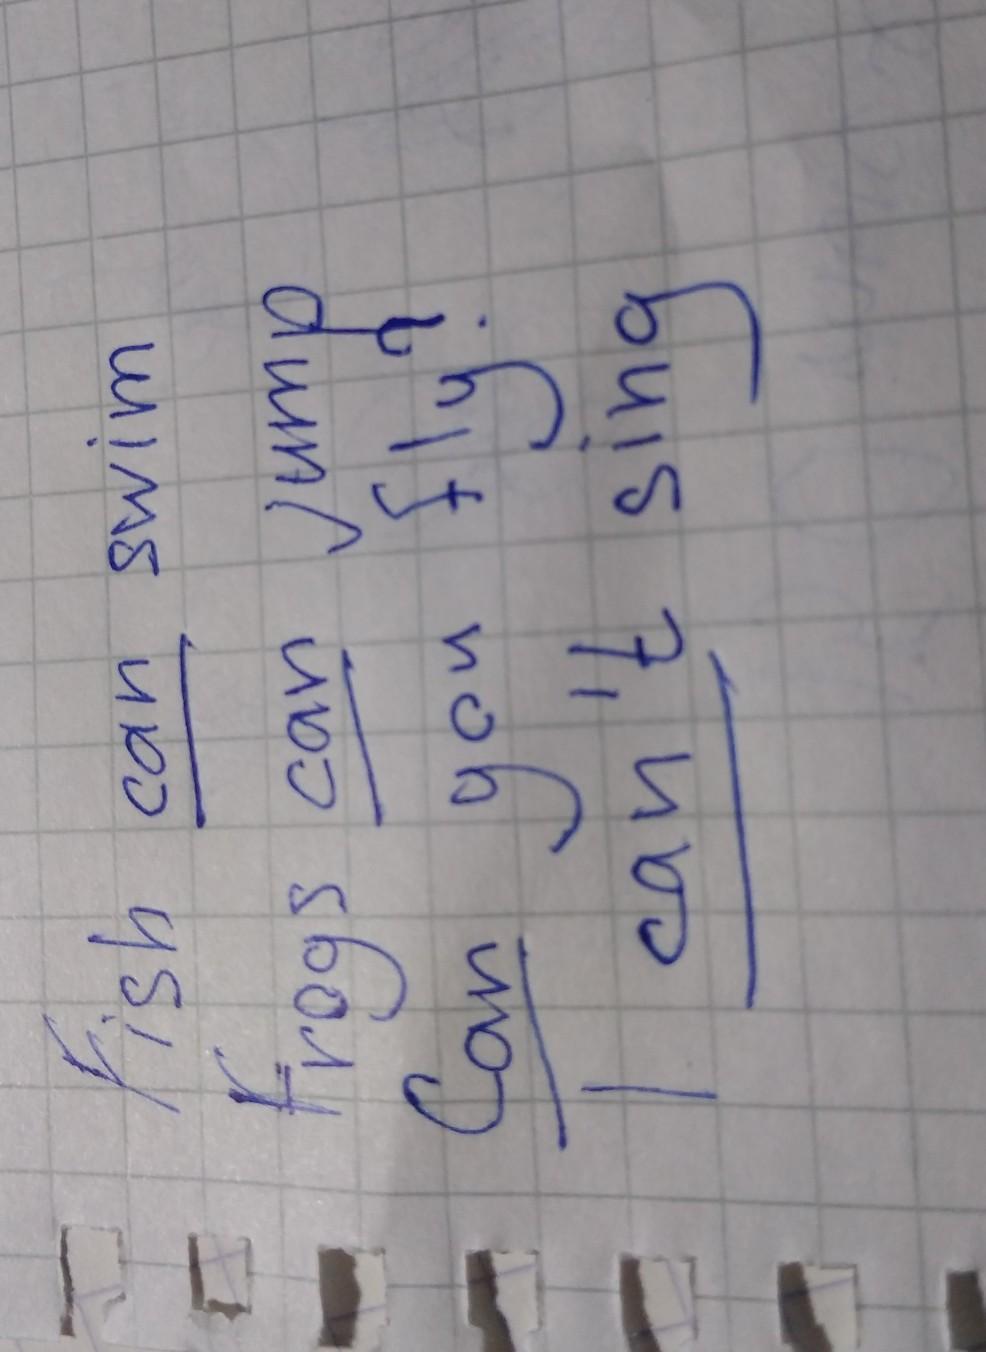 Fish can swim
Frogs can jump
Can you fly?
I can't sing